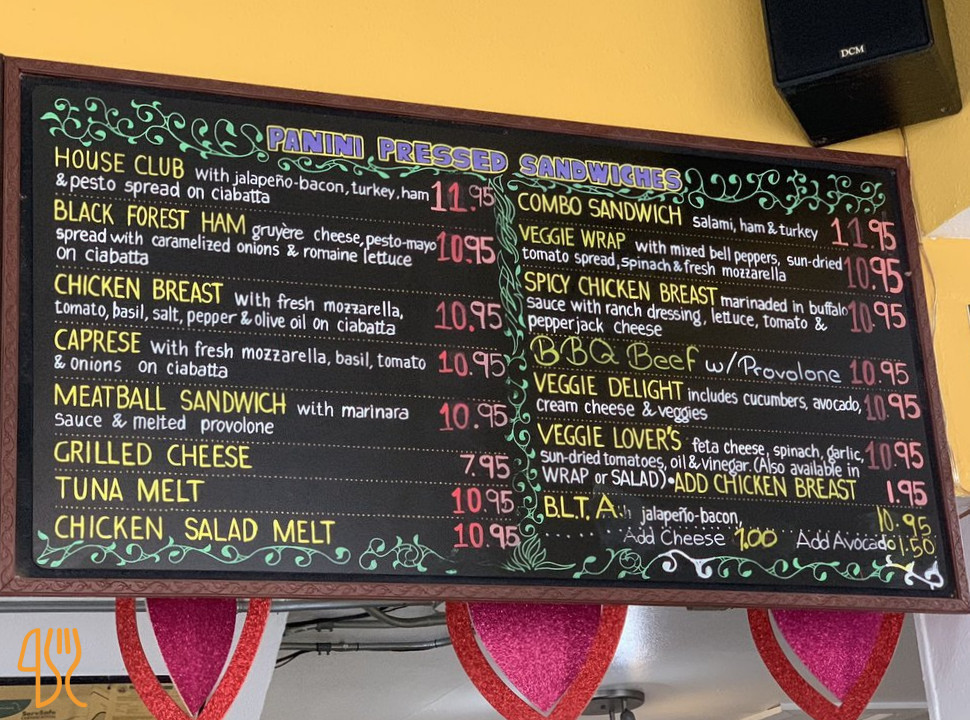 DCM
PANINI PRESSED SANDWICHES
HOUSE CLUB with jalapeño-bacon, turkey, ham 11.95
& pesto spread on ciabatta
BLACK FOREST HAM gruyère cheese, pesto-mayo 10.95
spread with caramelized onions & romaine lettuce
on ciabatta
CHICKEN BREAST with fresh mozzarella,
tomato, basil, salt, pepper & olive oil on ciabatta 10.95
CAPRESE with fresh mozzarella, basil, tomato 10.95
& onions on ciabatta
MEATBALL SANDWICH with marinara 10.95
sauce & melted provolone
GRILLED CHEESE 7.95
TUNA MELT 10.95
CHICKEN SALAD MELT 10.95
COMBO SANDWICH salami, ham & turkey 11.95
VEGGIE WRAP with mixed bell peppers, sun-dried
tomato spread, spinach & fresh mozzarella 10.95
SPICY CHICKEN BREAST marinaded in buffalo
sauce with ranch dressing, lettuce, tomato & 10.95
pepperjack cheese
BBQ Beef w/Provolone 10.95
VEGGIE DELIGHT includes cucumbers, avocado, 10.95
cream cheese & veggies
VEGGIE LOVER'S feta cheese, spinach, garlic, 10.95
sun-dried tomatoes, oil & vinegar. (Also available in
WRAP or SALAD) • ADD CHICKEN BREAST 1.95
B.L.T. A. jalapeño-bacon, 10.95
Add Cheese 1.00 Add Avocado 1.50